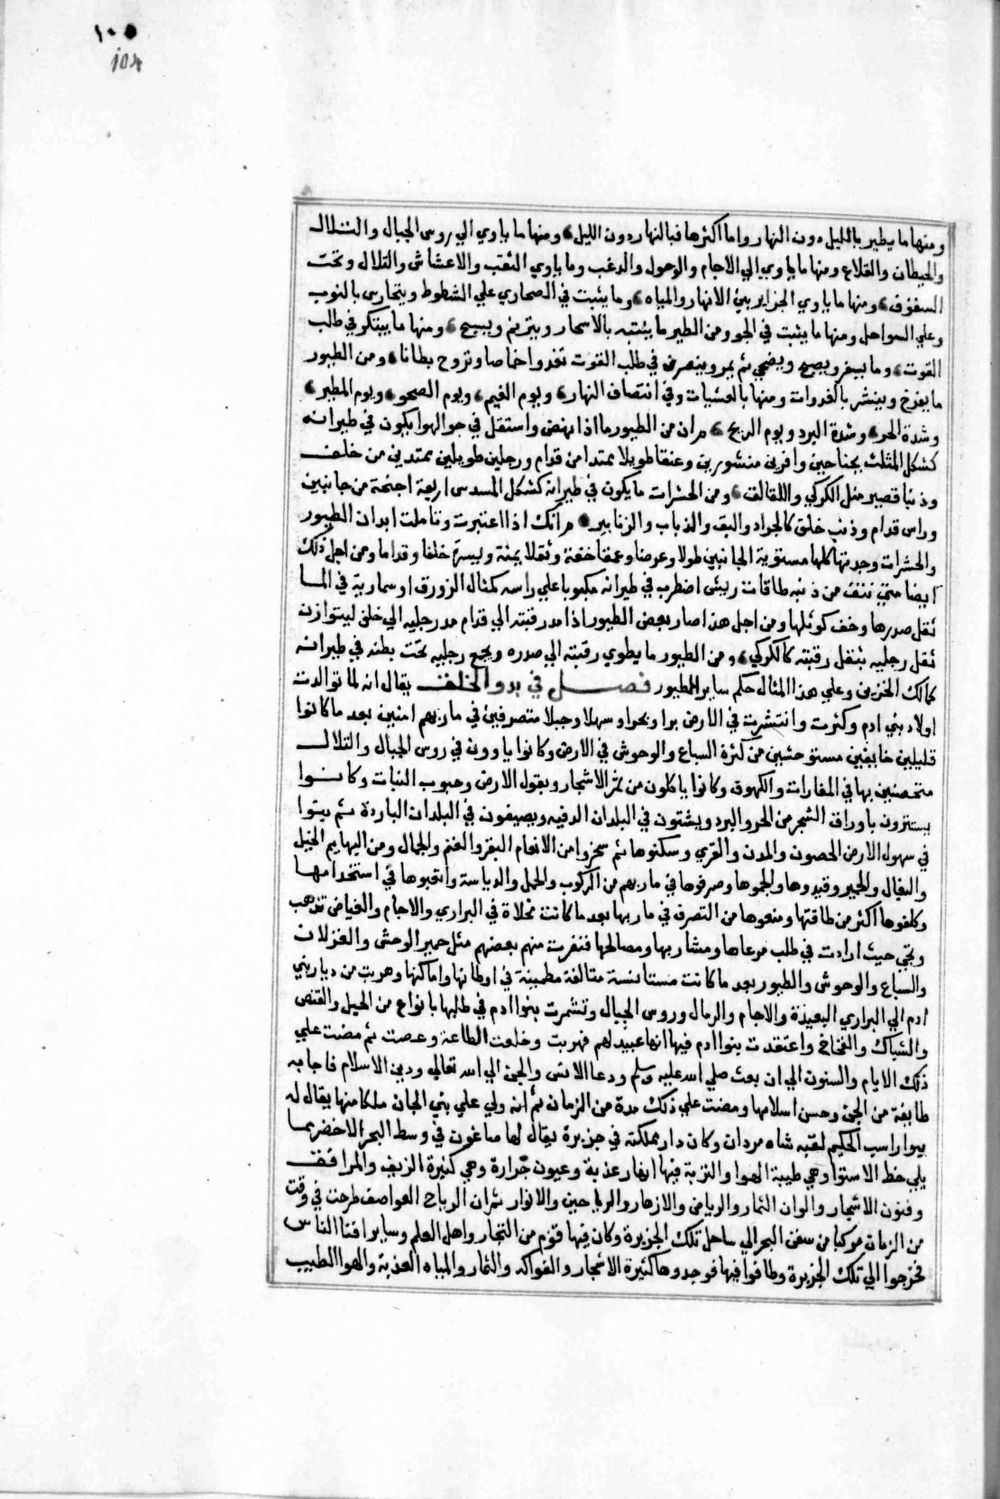 ١٠٥
104
ومنها ما يطير بالليل دون النهار واما اكثرها فبالنهار دون الليل ومنها ما ياوي الي روس الجبال والتلال
والحيطان والقلاع ومنها ما ياوي الي الاجام والوحول والدغب وما ياوي النقب والاعشاش والتلال وتحت
السقوف ومنها ما ياوي الجزاير بين الانهار والمياه وما يثبت في الصحاري علي الشطوط ويتحارس بالنوب
وعلي السواحل ومنها ما يثبت في الجو ومن الطير ما ينتبه بالاسحار ويترنم ويسبح ومنها ما يبتكر في طلب
القوت وما يسفر ويصبح ويضحي ثم يمر وينصرف في طلب القوت تغدوا خماصا وتروح بطانا ومن الطيور
ما يفرخ وينشر بالغدوات ومنها بالعشيات وفي انتصاف النهار ويوم الغيم ويوم الصحو ويوم المطير
وشدة الحر وشدة البرد ويوم الريح مران من الطيور ما اذا نهض واستقل في جو الهوا يكون في طيرانه
كشكل المثلث بجناحين وافرين منشورين وعنقا طويلا ممتدا من قدام ورجلين طويلين ممتدين من خلف
وذنبا قصير مثل الكركي واللقالق ومن الحشرات ما يكون في طيرانه كشكل المسدس اربعة اجنحة من جانبين
وراس قدام وذنب خلف كالجراد والبق والذباب والزنابير مرانك اذا اعتبرت وتاملت ابدان الطيور
والحشرات وجدتها كلها مستوية الجانبين طولا وعرضا وعمقا خفة وثقلا يمنة ويسرة خلفا وقداما ومن اجل ذلك
ايضا متي نتف من ذنبه طاقات ريش اضطرب في طيرانه مكبوبا علي راسه كمثال الزورق او سمارية في الما
ثقل صدرها وخف كوثلها ومن اجل هذا صار بعض الطيور اذا مد رقبته الي قدام مد رجليه الي خلف ليتوازن
ثقل رجليه بثقل رقبته كالكركي ومن الطيور ما يطوي رقبته الي صدره ويجمع رجليه تحت بطنه في طيرانه
كمالك الحزين وعلي هذا المثال حكم ساير الطيور فصل في بدو الخلق يقال انه لما توالدت
اولاد بني ادم وكثرت وانتشرت في الارض برا وبحرا وسهلا وجبلا متصرفين في ماربهم امنين بعد ما كانوا
قليلين خايفين مستوحشين من كثرة السباع والوحوش في الارض وكانوا ياوون في روس الجبال والتلال
متحصنين بها في المغارات والكهوف وكانوا ياكلون من ثمر الاشجار وبقول الارض وحبوب النبات وكانوا
يستترون باوراق الشجر من الحر والبرد ويشتون في البلدان الدفيه ويصيفون في البلدان الباردة ثم بنوا
في سهول الارض الحصون والمدن والقري وسكنوها ثم سخروا من الانعام البقر والغنم والجمال ومن البهايم الخيل
والبغال والحمير وقيدوها والجموها وصرفوها في ماربهم من الركوب والحمل والدياسة واتعبوها في استخدامها
وكلفوها اكثر من طاقتها ومنعوها من التصرف في ماربها بعد ما كانت مخلاة في البراري والاجام والغياض تذهب
وتجي حيث ارادت في طلب مرعاها ومشاربها ومصالحها فنفرت منهم بعضهم مثل حمير الوحش والغزلان
والسباع والوحوش والطيور بعد ما كانت مستانسة متالفة مطمينة في اوطانها واماكنها وهربت من ديار بني
ادم الي البراري البعيدة والاجام والرمال وروس الجبال وتشمرت بنوا ادم في طلبها بانواع من الحيل والقنص
والشباك والفخاخ واعتقدت بنوا ادم فيها انها عبيد لهم فهربت وخلعت الطاعة وعصت ثم مضت علي
ذلك الايام والسنون الي ان بعث صلي الله عليه وسلم ودعا الانس والجن الي الله تعالي ودين الاسلام فاجابه
طايفة من الجن وحسن اسلامها ومضت علي ذلك مدة من الزمان ثم انه ولي علي بني الجان ملكا منها يقال له
بيواراسب الحكيم لقبه شاه مردان وكان دار مملكته في جزيرة يقال لها صاغون في وسط البحر الاخضر مما
يلي خط الاستوا وهي طيبة الهوا والتربة فيها انهار عذبة وعيون جرارة وهي كثيرة الريف والمرافق
وفنون الاشجار والوان الثمار والرياض والازهار والرياحين والانوار ثم ان الرياح العواصف طرحت في وقت
من الزمان مركبا من سفن البحر الي ساحل تلك الجزيرة وكان فيها قوم من التجار واهل العلم وساير افنا الناس
فخرجوا الي تلك الجزيرة وطافوا فيها فوجدوها كثيرة الاشجار والفواكه والثمار والمياه العذبة والهوا الطيب